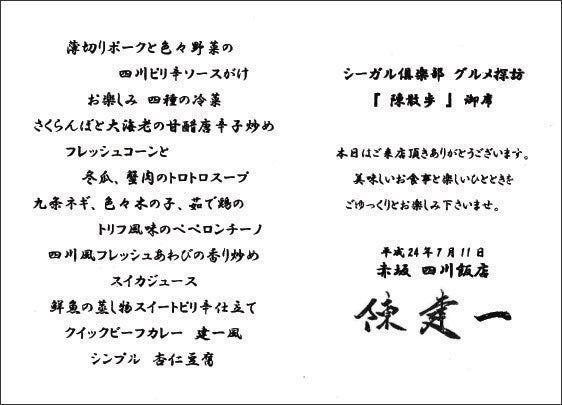 薄切りポークと色々野菜の
四川ピリ辛ソースがけ
お楽しみ 四種の冷菜
さくらんぼと大海老の甘醋唐辛子炒め
フレッシュコーンと
冬瓜、蟹肉のトロトロスープ
九条ネギ、色々木の子、茹で鶏の
トリフ風味のペペロンチーノ
四川風フレッシュあわびの香り炒め
スイカジュース
鮮魚の蒸し物スイートピリ辛仕立て
クイックビーフカレー 建一風
シンプル 杏仁豆腐
シーガル倶楽部 グルメ探訪
『 陳散歩 』 御席
本日はご来店頂きありがとうございます。
美味しいお食事と楽しいひとときを
ごゆっくりとお楽しみ下さいませ。
平成24年7月11日
赤坂 四川飯店
陳建一